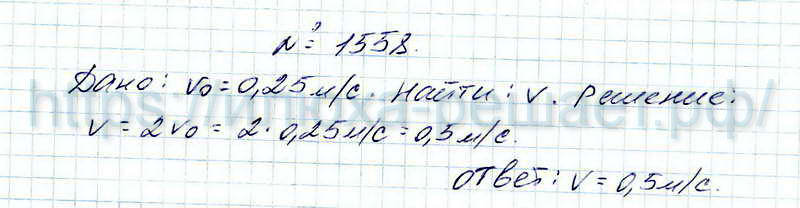 № 1558.
Дано: v₀ = 0,25 м/с. Найти: v. Решение:
v = 2v₀ = 2 · 0,25 м/с = 0,5 м/с.
Ответ: v = 0,5 м/с.